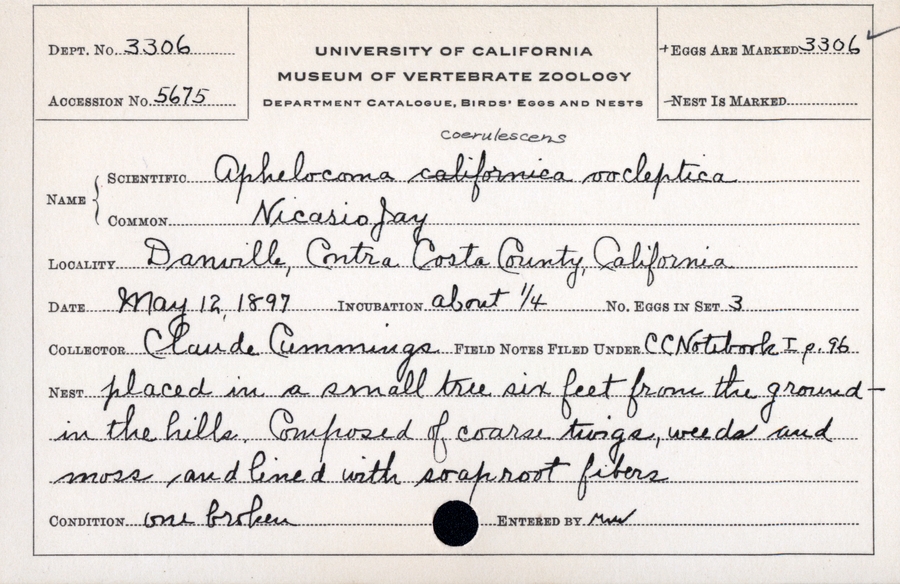 DEPT. No. 3306
UNIVERSITY OF CALIFORNIA
+EGGS ARE MARKED 3306 ✓
MUSEUM OF VERTEBRATE ZOOLOGY
ACCESSION No. 5675
DEPARTMENT CATALOGUE, BIRDS' EGGS AND NESTS
-NEST IS MARKED
coerulescens
NAME { SCIENTIFIC Aphelocoma californica oocleptica
COMMON Nicasio Jay
LOCALITY Danville, Contra Costa County, California
DATE May 12, 1897 INCUBATION about 1/4 No. EGGS IN SET 3
COLLECTOR Claude Cummings FIELD NOTES FILED UNDER CC Notebook I p. 96
NEST placed in a small tree six feet from the ground—
in the hills. Composed of coarse twigs, weeds and
moss and lined with soaproot fibers
CONDITION one broken ENTERED BY